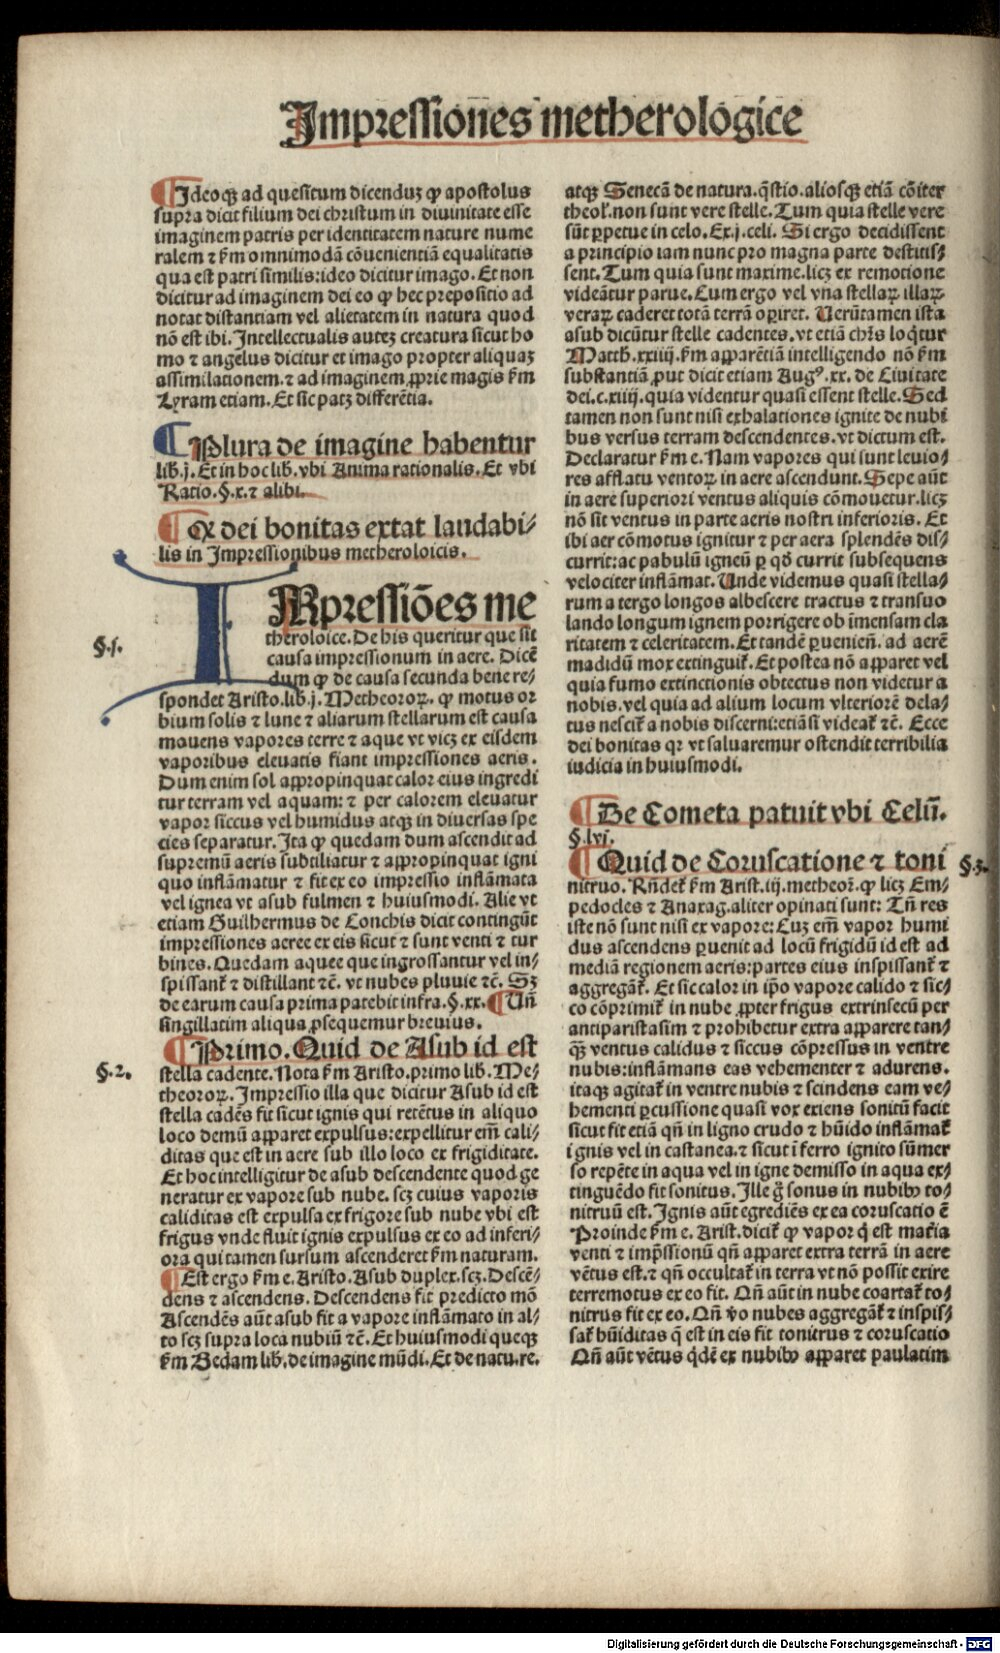 Impressiones metherologice
¶Ideoqꝫ ad quesitum dicenduꝫ ꝙ apostolus
supra dicit filium dei christum in diuinitate esse
imaginem patris per identitatem nature nume
ralem ⁊ ẜm omnimodā cōuenientiā equalitatis
qua est patri similis: ideo dicitur imago. Et non
dicitur ad imaginem dei eo ꝙ hec prepositio ad
notat distantiam vel alietatem in natura quod
nō est ibi. Intellectualis auteꝫ creatura sicut ho
mo ⁊ angelus dicitur et imago propter aliquaꝫ
assimilationem. ⁊ ad imaginem ꝓprie magis ẜm
Lyram etiam. Et sic patꝫ differētia.
¶Plura de imagine habentur
lib. j. Et in hoc lib. vbi Anima rationalis. Et vbi
Ratio. §. x. ⁊ alibi.
¶Ex dei bonitas extat laudabi⸗
lis in Impressionibus metheroloicis.
§.1.
IMpressiōes me
theroloice. De his queritur que sit
causa impressionum in aere. Dicē
dum ꝙ de causa secunda bene re⸗
spondet Aristo. lib. j. Metheoroꝝ. ꝙ motus or
bium solis ⁊ lune ⁊ aliarum stellarum est causa
mouens vapores terre ⁊ aque vt vicꝫ ex eisdem
vaporibus eleuatis fiant impressiones aeris.
Dum enim sol appropinquat calor eius ingredi
tur terram vel aquam: ⁊ per calorem eleuatur
vapor siccus vel humidus atqꝫ in diuersas spe
cies separatur. Ita ꝙ quedam dum ascendit ad
supremū aeris subtiliatur ⁊ appropinquat igni
quo inflāmatur ⁊ fit ex eo impressio inflāmata
vel ignea vt asub fulmen ⁊ huiusmodi. Alie vt
etiam Guilhermus de Conchis dicit contingūt
impressiones aeree ex eis sicut ⁊ sunt venti ⁊ tur
bines. Quedam aquee que ingrossantur vel in⸗
spissant᷑ ⁊ distillant ⁊c̄. vt nubes pluuie ⁊c̄. Sꝫ
de earum causa prima patebit infra. §. xx. ¶Un̄
singillatim aliqua ꝓsequemur breuius.
§.2.
¶Primo. Quid de Asub id est
stella cadente. Nota ẜm Aristo. primo lib. Me⸗
theoroꝝ. Impressio illa que dicitur Asub id est
stella cadēs fit sicut ignis qui retētus in aliquo
loco demū apparet expulsus: expellitur em̄ cali⸗
ditas que est in aere sub illo loco ex frigiditate.
Et hoc intelligitur de asub descendente quod ge
neratur ex vapore sub nube. scꝫ cuius vaporis
caliditas est expulsa ex frigore sub nube vbi est
frigus vnde fluit ignis expulsus ex eo ad inferi⸗
ora qui tamen sursum ascenderet ẜm naturam.
¶Est ergo ẜm e. Aristo. Asub duplex. scꝫ. Descē⸗
dens ⁊ ascendens. Descendens fit predicto mō
Ascendēs aūt asub fit a vapore inflāmato in al⸗
to scꝫ supra loca nubiū ⁊c̄. Et huiusmodi queqꝫ
ẜm Bedam lib. de imagine mūdi. Et de natu. re.
atqꝫ Senecā de natura. q̄stio. aliosqꝫ etiā cōiter
theol᷑. non sunt vere stelle. Tum quia stelle vere
sūt ꝑpetue in celo. Ex. j. celi. Si ergo decidissent
a principio iam nunc pro magna parte destitis⸗
sent. Tum quia sunt maxime. licꝫ ex remotione
videātur parue. Cum ergo vel vna stellaꝝ illaꝝ
veraꝝ caderet totā terrā oꝑiret. Uerūtamen ista
asub dicūtur stelle cadentes. vt etiā chr̄s loq̄tur
Matth. xxiiij. ẜm apparētiā intelligendo nō ẜm
substantiā ꝓut dicit etiam Augꝰ. xx. de Ciuitate
dei. c. xiiij. quia videntur quasi essent stelle. Sed
tamen non sunt nisi exhalationes ignite de nubi
bus versus terram descendentes. vt dictum est.
Declaratur ẜm e. Nam vapores qui sunt leuio⸗
res afflatu ventoꝝ in aere ascendunt. Sepe aūt
in aere superiori ventus aliquis cōmouetur. licꝫ
nō sit ventus in parte aeris nostri inferioris. Et
ibi aer cōmotus ignitur ⁊ per aera splendēs dis⸗
currit: ac pabulū igneū ꝑ qd̄ currit subsequens
velociter inflāmat. Unde videmus quasi stella⸗
rum a tergo longos albescere tractus ⁊ transuo
lando longum ignem porrigere ob īmensam cla
ritatem ⁊ celeritatem. Et tandē ꝑuenien̄. ad aerē
madidū mox extinguit᷑. Et postea nō apparet vel
quia fumo extinctionis obtectus non videtur a
nobis. vel quia ad alium locum vlteriorē dela⸗
tus nescit᷑ a nobis discerni: etiāsi videat᷑ ⁊c̄. Ecce
dei bonitas qr vt saluaremur ostendit terribilia
iudicia in huiusmodi.
¶De Cometa patuit vbi Celū.
§. lvj.
§.3.
¶Quid de Coruscatione ⁊ toni
nitruo. Rn̄det᷑ ẜm Arist. iij. metheoꝝ. ꝙ licꝫ Em⸗
pedocles ⁊ Anaxag. aliter opinati sunt: Tn̄ res
iste nō sunt nisi ex vapore: Cuꝫ em̄ vapor humi
dus ascendens ꝑuenit ad locū frigidū id est ad
mediā regionem aeris: partes eius inspissant᷑ ⁊
aggregāt᷑. Et sic calor in ip̄o vapore calido ⁊ sic⸗
co cōprimit᷑ in nube ꝓpter frigus extrinsecū per
antiparistasim ⁊ prohibetur extra apparere tan⸗
qꝫ ventus calidus ⁊ siccus cōpressus in ventre
nubis: inflāmans eas vehementer ⁊ adurens.
itaqꝫ agitat᷑ in ventre nubis ⁊ scindens eam ve⸗
hementi ꝑcussione quasi vox exiens sonitū facit
sicut fit etiā qn̄ in ligno crudo ⁊ hūido inflāmat᷑
ignis vel in castanea. ⁊ sicut ī ferro ignito sūmer
so repēte in aqua vel in igne demisso in aqua ex⸗
tinguēdo fit sonitus. Ille g̊ sonus in nubibꝫ to⸗
nitruū est. Ignis aūt egrediēs ex ea coruscatio ē
Proinde ẜm e. Arist. dicit᷑ ꝙ vapor q̇ est mat̄ia
venti ⁊ imp̄ssionū qn̄ apparet extra terrā in aere
vētus est. ⁊ qn̄ occultat᷑ in terra vt nō possit exire
terremotus ex eo fit. Qn̄ aūt in nube coartat᷑ to⸗
nitrus fit ex eo. Qn̄ v̊o nubes aggregāt᷑ ⁊ inspis⸗
sat᷑ hūiditas q̄ est in eis fit tonitrus ⁊ coruscatio
Qn̄ aūt vētus q̇dē ex nubibꝫ apparet paulatim
Digitalisierung gefördert durch die Deutsche Forschungsgemeinschaft - DFG